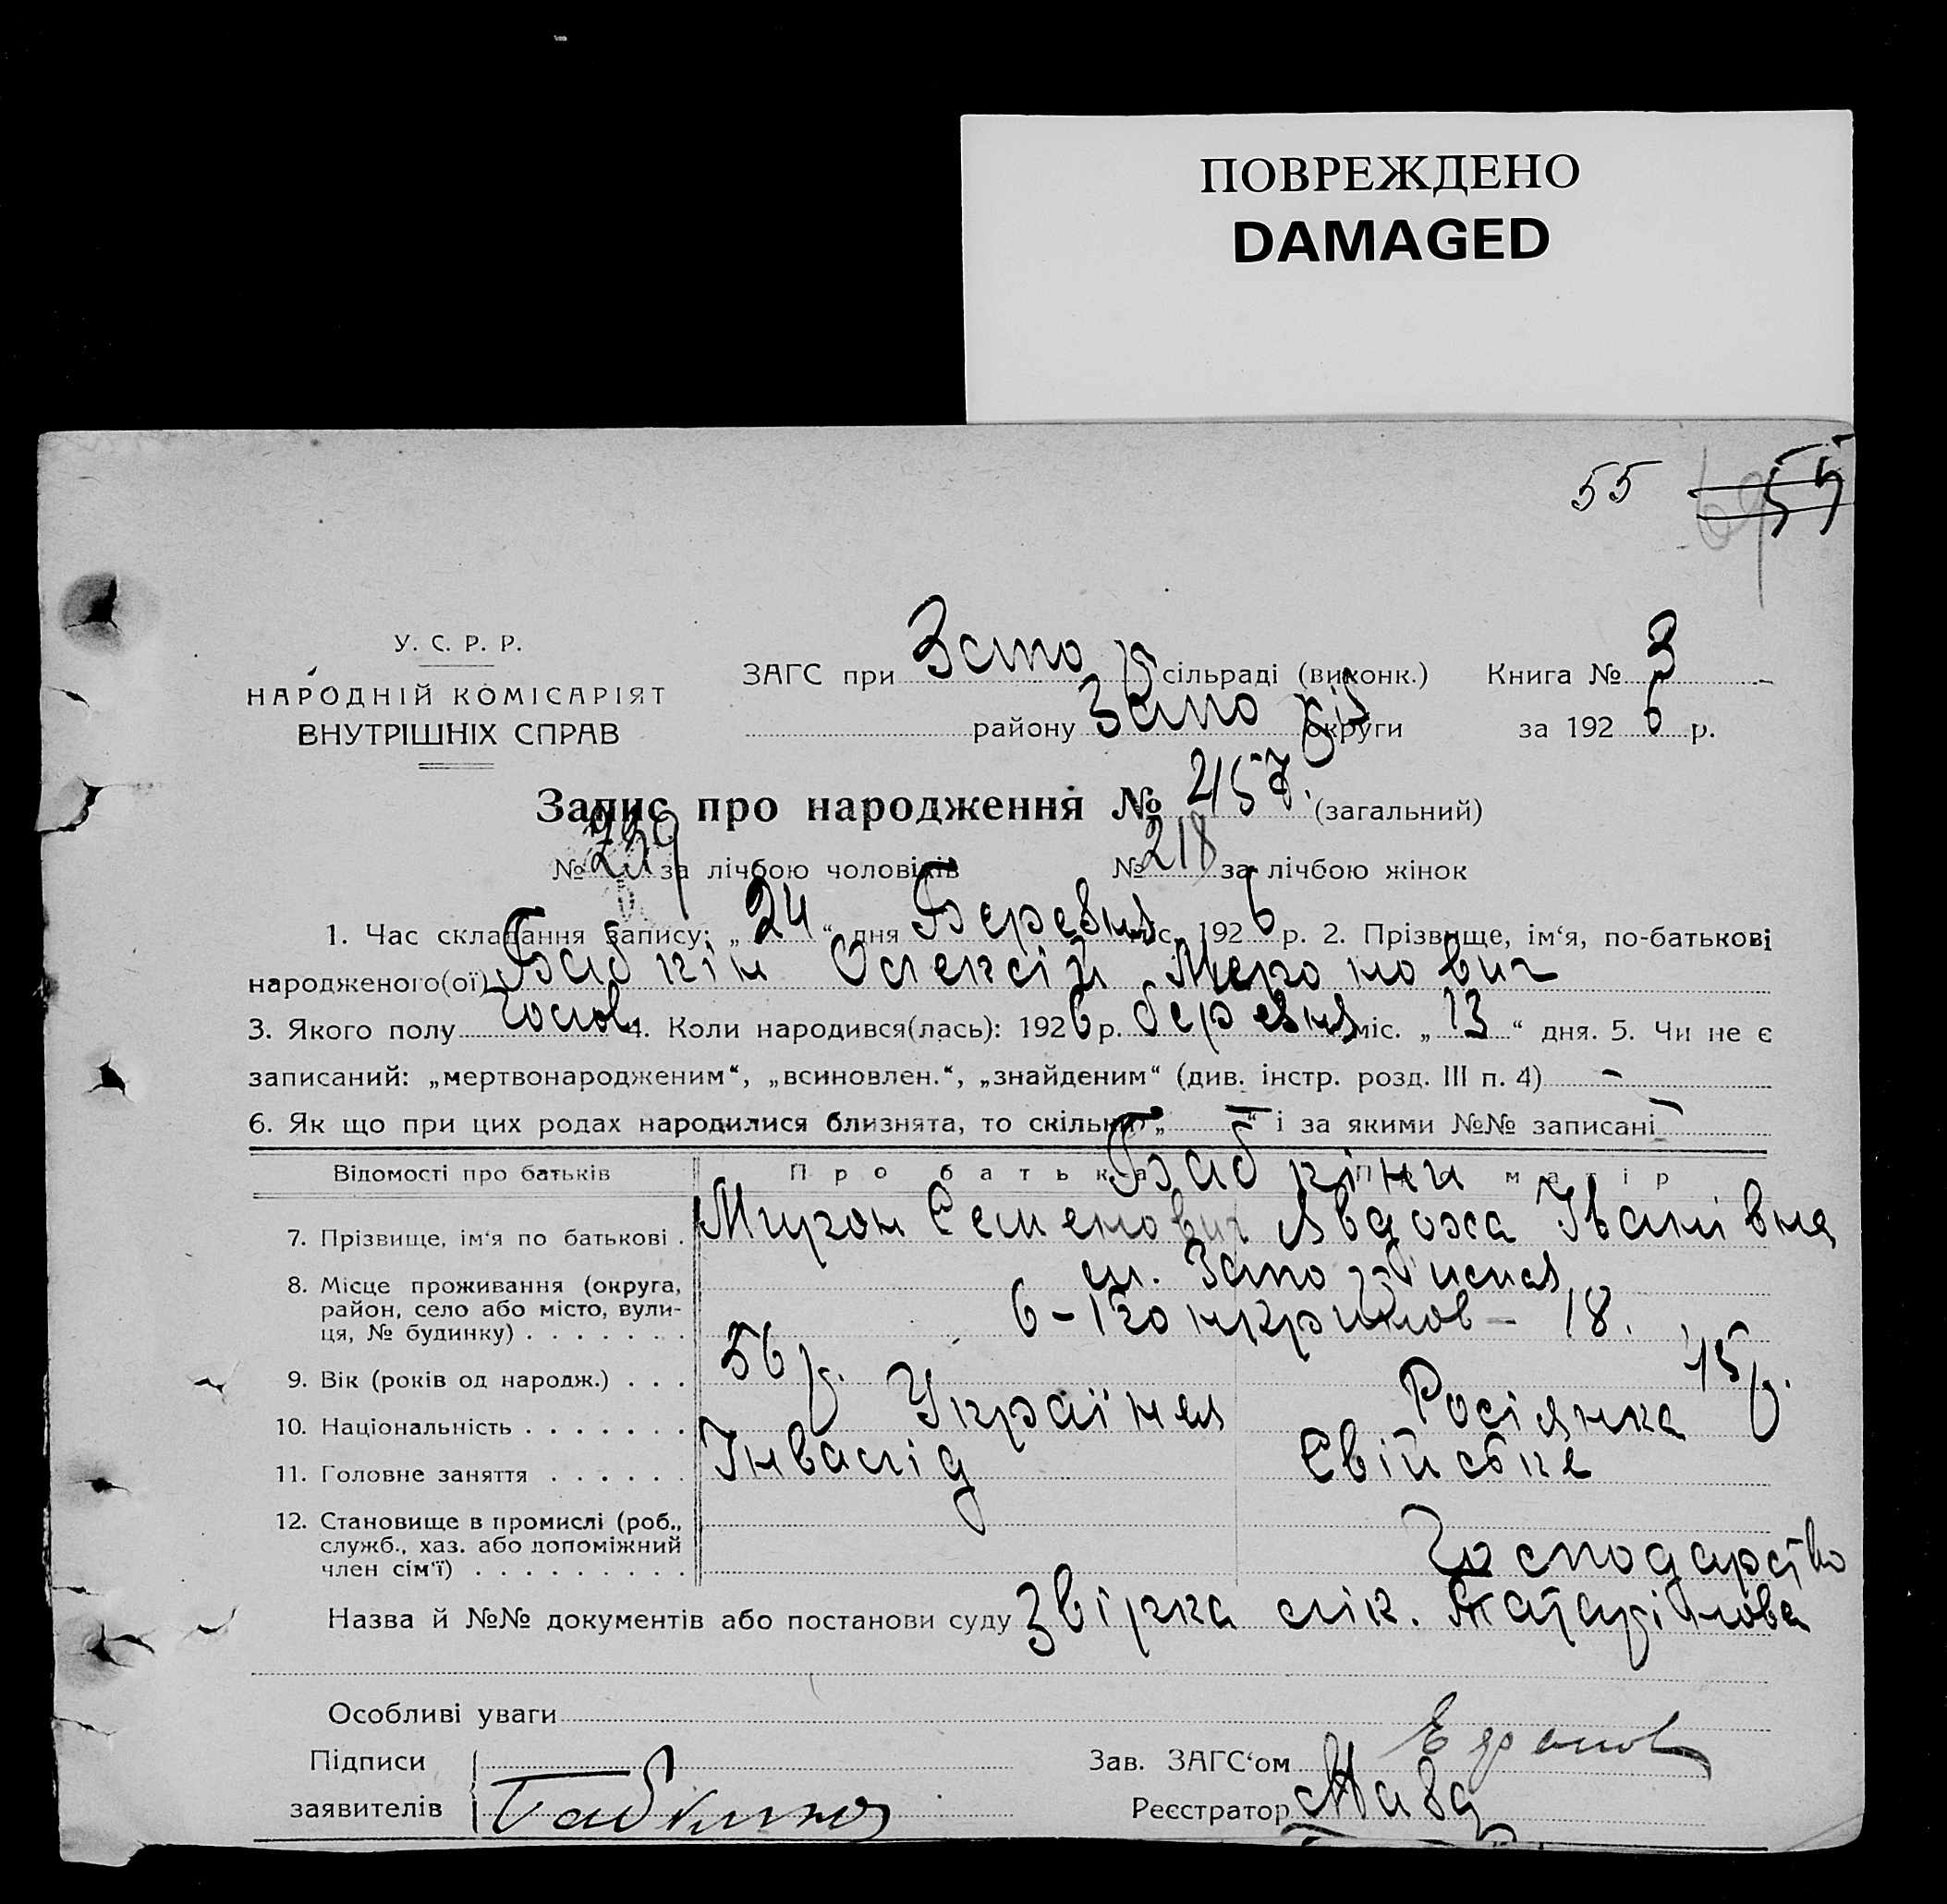 ПОВРЕЖДЕНО
DAMAGED
55 55
У. С. Р. Р.
НАРОДНІЙ КОМІСАРІЯТ
ВНУТРІШНІХ СПРАВ
ЗАГС при Запор сільраді (виконк.) Книга № 3
району Запоріз округи за 1926 р.
Запис про народження № 457. (загальний)
№ 239 за лічбою чоловіків № 218 за лічбою жінок
1. Час складання запису: „24“ дня Березня міс. 1926 р. 2. Прізвище, ім‘я, по-батькові
народженого(ої) Бабкін Олексій Меронович
3. Якого полу Чолов. 4. Коли народився(лась): 1926 р. березня міс. „13“ дня. 5. Чи не є
записаний: „мертвонародженим“, „всиновлен.“, „знайденим“ (див. інстр. розд. III п. 4) –
6. Як що при цих родах народилися близнята, то скільки „ – “ і за якими №№ записані –
Відомості про батьків Про батька Про матір
Бабкіни
7. Прізвище, ім‘я по батькові . Мирон Семенович Явдоха Іванівна
8. Місце проживання (округа,
район, село або місто, вули-
ця, № будинку) . . . . . . .
6 – 18.
9. Вік (років од народж.) . . . 56 р. 45 р.
10. Національність . . . . . . . Українец Росіянка
11. Головне заняття . . . . . . Інвалід Свійське
12. Становище в промислі (роб.,
служб., хаз. або допоміжний
член сім‘ї) . . . . . . . . . Господарство
Назва й №№ документів або постанови суду Звірка лік.
Особливі уваги
Підписи
заявителів Бабкина
Зав. ЗАГС‘ом
Реєстратор